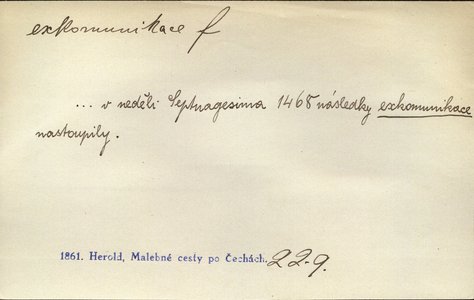 exkomunikace f
... v neděli Septuagesima 1468 následky exkomunikace
nastoupily.
1861. Herold, Malebné cesty po Čechách. 229.